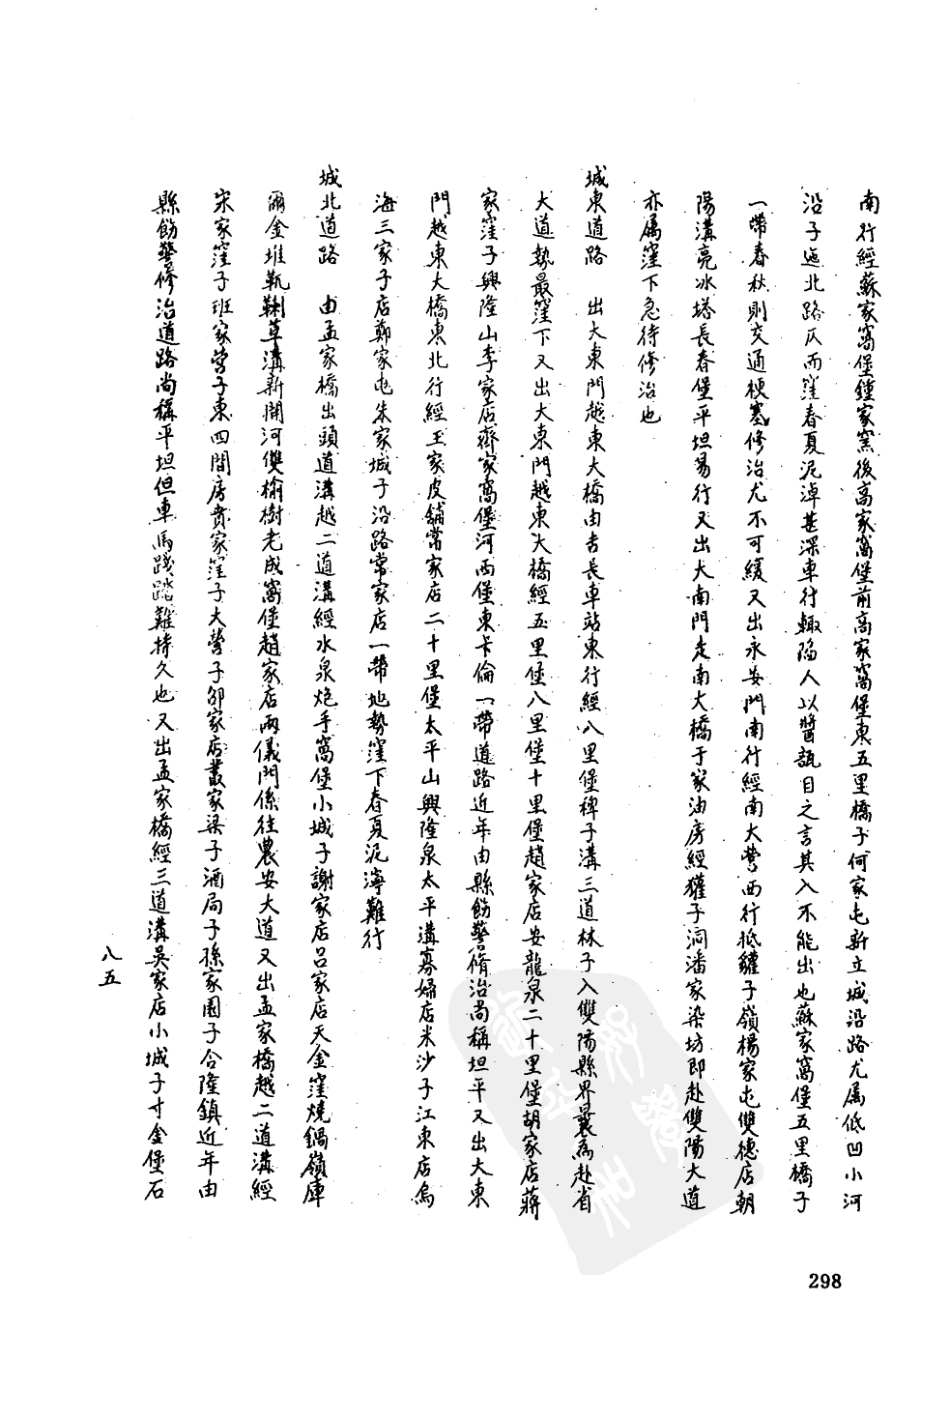 南行經蘇家窩堡鍾家窯後高家窩堡前高家窩堡東五里橋子何家屯新立城沿路尤属低凹小河
沿子迤北路仄而窪春夏泥淖甚深車行輙陷人以醬瓿目之言其入不能出也蘇家窩堡五里橋子
一帶春秋則交通梗塞修治尤不可緩又出永安門南行經南大營西行抵鑵子嶺楊家屯雙德店朝
陽溝亮冰塔長春堡平坦易行又出大南門走南大橋于家油房經獾子洞潘家染坊即赴雙陽大道
亦属窪下急待修治也
城東道路 出大東門越東大橋由吉長車站東行經八里堡稗子溝三道林子入雙陽縣界曩為赴省
大道勢最窪下又出大東門越東大橋經五里堡八里堡十里堡趙家店安龍泉二十里堡胡家店蔣
家窪子興隆山李家店齊家窩堡河西堡東卡倫一帶道路近年由縣飭警脩治尚稱坦平又出大東
門越東大橋東北行經王家皮舖常家店二十里堡太平山興隆泉太平溝寡婦店米沙子江東店烏
海三家子店鄭家屯朱家城子沿路常家店一帶地勢窪下春夏泥濘難行
城北道路 由孟家橋出頭道溝越二道溝經水泉炮手窩堡小城子謝家店呂家店天金窪燒鍋嶺庫
爾金堆靰鞡草溝新開河雙榆樹老成窩堡趙家店兩儀門係往農安大道又出孟家橋越二道溝經
宋家窪子班家營子東四間房賁家窪子大營子邹家店叢家梁子酒局子孫家園子合隆鎮近年由
縣飭警修治道路尚稱平坦但車馬踐踏難持久也又出孟家橋經三道溝吳家店小城子寸金堡石
八五
298